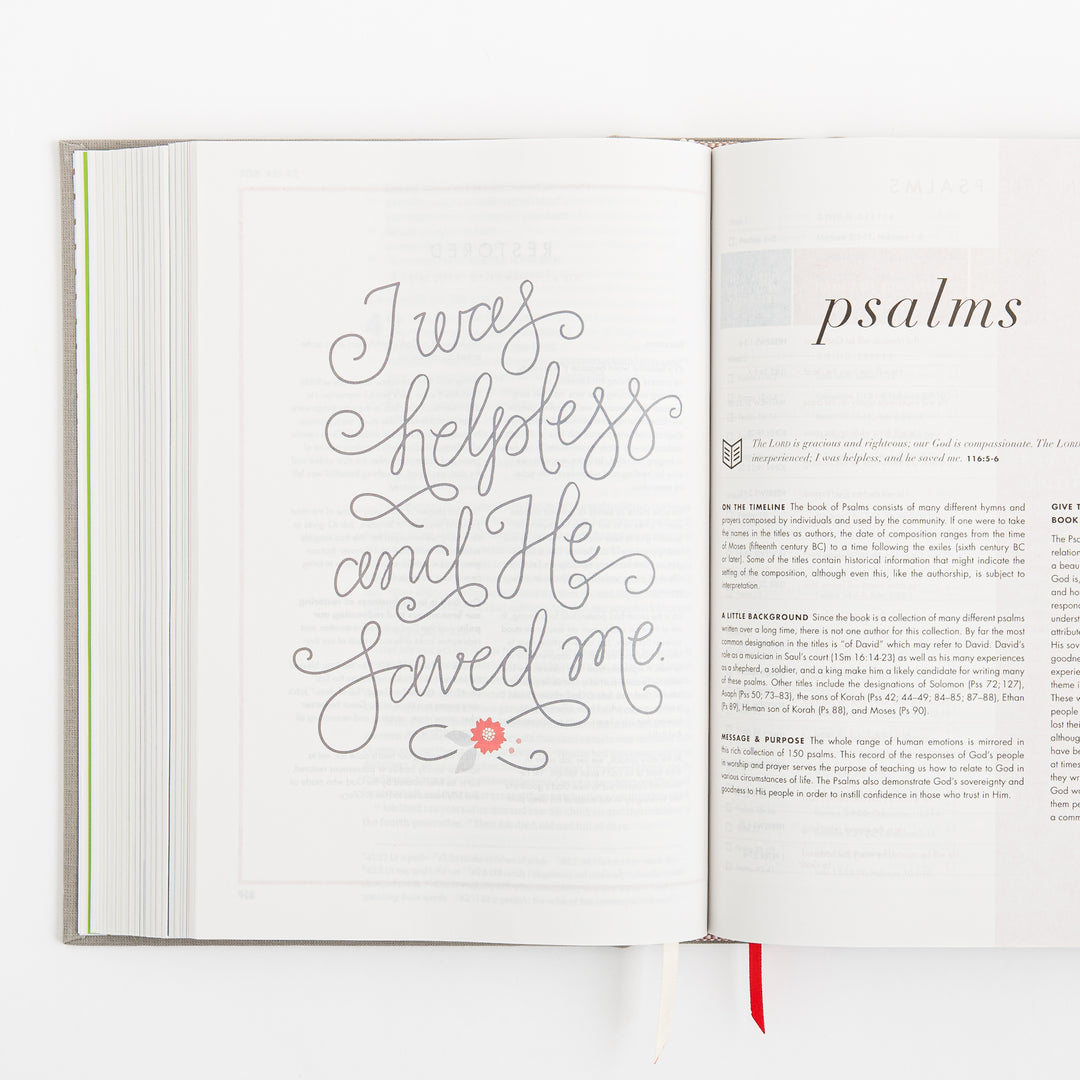 I was
helpless
and He
saved me.
psalms
The LORD is gracious and righteous; our God is compassionate. The LORD
inexperienced; I was helpless, and he saved me. 116:5-6
ON THE TIMELINE The book of Psalms consists of many different hymns and
prayers composed by individuals and used by the community. If one were to take
the names in the titles as authors, the date of composition ranges from the time
of Moses (fifteenth century BC) to a time following the exiles (sixth century BC
or later). Some of the titles contain historical information that might indicate the
setting of the composition, although even this, like the authorship, is subject to
interpretation.
A LITTLE BACKGROUND Since the book is a collection of many different psalms
written over a long time, there is not one author for this collection. By far the most
common designation in the titles is "of David" which may refer to David. David's
role as a musician in Saul's court (1Sm 16:14-23) as well as his many experiences
as a shepherd, a soldier, and a king make him a likely candidate for writing many
of these psalms. Other titles include the designations of Solomon (Pss 72; 127),
Asaph (Pss 50; 73–83), the sons of Korah (Pss 42; 44–49; 84–85; 87–88), Ethan
(Ps 89), Heman son of Korah (Ps 88), and Moses (Ps 90).
MESSAGE & PURPOSE The whole range of human emotions is mirrored in
this rich collection of 150 psalms. This record of the responses of God's people
in worship and prayer serves the purpose of teaching us how to relate to God in
various circumstances of life. The Psalms also demonstrate God's sovereignty and
goodness to His people in order to instill confidence in those who trust in Him.
GIVE
BOOK
The
a
God is,
and
His
These
people
lost
have
at times
they
God
them
a